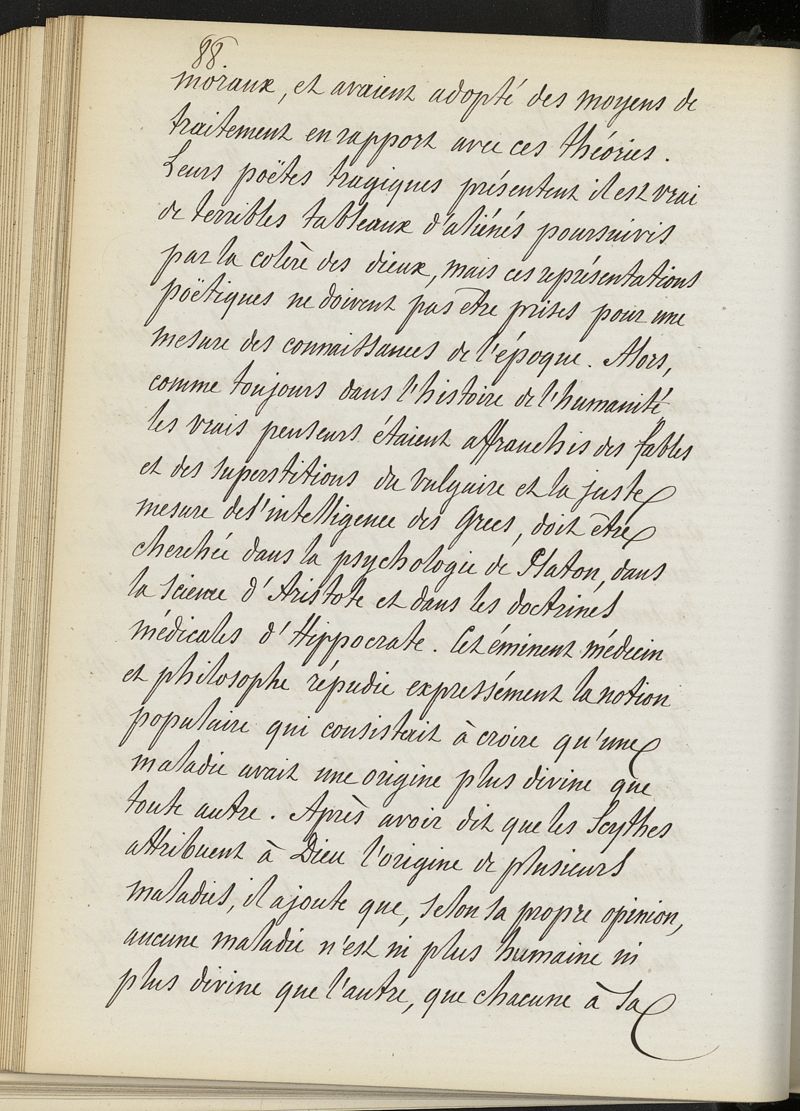 88
moraux, et avaient adopté des moyens de
traitement en rapport avec ces théories.
Leurs poëtes tragiques présentent il est vrai
de terribles tableaux d'aliénés poursuivis
par la colère des dieux, mais ces représentations
poëtiques ne doivent pas être prises pour une
mesure des connaissances de l'époque. Alors,
comme toujours dans l'histoire de l'humanité
les vrais penseurs étaient affranchis des fables
et des superstitions du vulgaire et la juste
mesure de l'intelligence des Grecs, doit être
cherchée dans la psychologie de Platon, dans
la science d'Aristote et dans les doctrines
médicales d'Hippocrate. Cet éminent médecin
et philosophe répudie expressément la notion
populaire qui consistait à croire qu'une
maladie avait une origine plus divine que
toute autre. Après avoir dit que les Scythes
attribuent à Dieu l'origine de plusieurs
maladies, il ajoute que, selon sa propre opinion,
aucune maladie n'est ni plus humaine ni
plus divine que l'autre, que chacune à sa